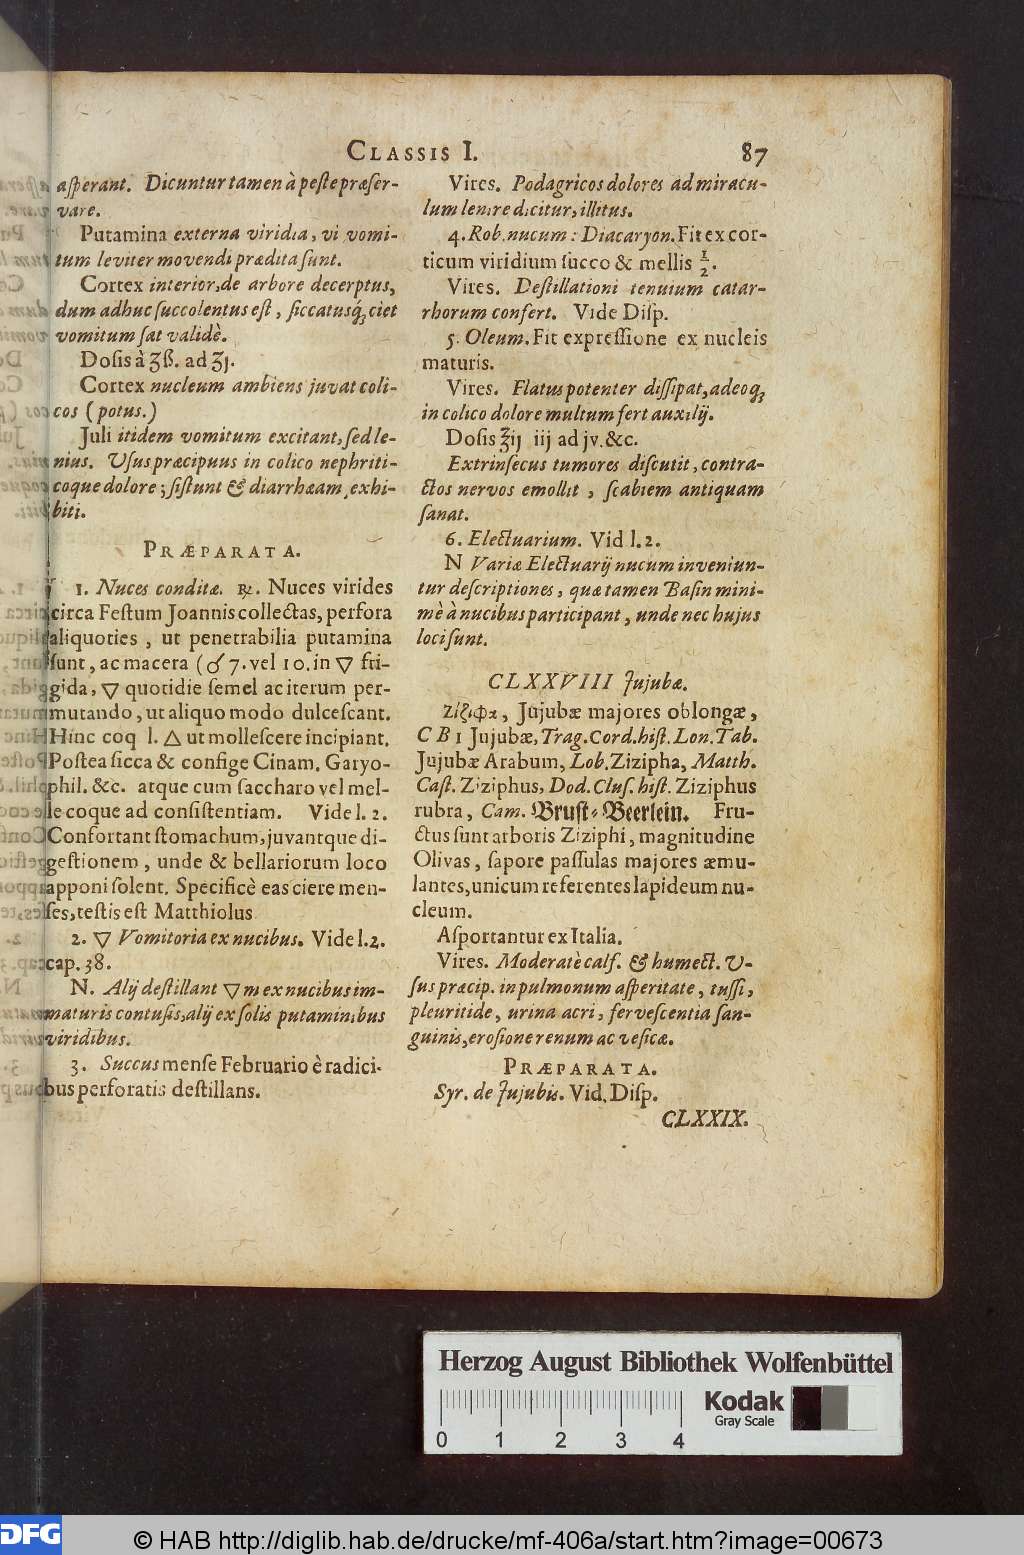 CLASSIS I. 87
asperant. Dicuntur tamen à peste præser-
vare.
Putamina externa viridia, vi vomi-
tum leviter movendi prædita sunt.
Cortex interior, de arbore decerptus,
dum adhuc succolentus est, siccatusq́; ciet
vomitum sat validè.
Dosis à ʒß. ad ʒj.
Cortex nucleum ambiens juvat coli-
cos (potus.)
Juli itidem vomitum excitant, sed le-
nius. Usus præcipuus in colico nephriti-
coque dolore; sistunt & diarrhæam, exhi-
biti.
PRÆPARATA.
1. Nuces conditæ. ℞. Nuces virides
circa Festum Joannis collectas, perfora
aliquoties, ut penetrabilia putamina
sunt, ac macera (♂ 7. vel 10. in ▽ fri-
gida, ▽ quotidie semel ac iterum per-
mutando, ut aliquo modo dulcescant.
Hinc coq l. △ ut mollescere incipiant.
Postea sicca & confige Cinam. Garyo-
phil. &c. atque cum saccharo vel mel-
le coque ad consistentiam. Vide l. 2.
Confortant stomachum, juvantque di-
gestionem, unde & bellariorum loco
apponi solent. Specificè eas ciere men-
ses, testis est Matthiolus
2. ▽ Vomitoria ex nucibus. Vide l. 2.
cap. 38.
N. Alij destillant ▽ m ex nucibus im-
maturis contusis, alij ex solis putaminibus
viridibus.
3. Succus mense Februario è radici-
bus perforatis destillans.
Vires. Podagricos dolores ad miracu-
lum lenire dicitur, illitus.
4. Rob. nucum: Diacaryon. Fit ex cor-
ticum viridium succo & mellis 1/2.
Vires. Destillationi tenuium catar-
rhorum confert. Vide Disp.
5. Oleum. Fit expressione ex nucleis
maturis.
Vires. Flatus potenter dissipat, adeoq;
in colico dolore multum fert auxilij.
Dosis ℥ij iij ad jv. &c.
Extrinsecus tumores discutit, contra-
ctos nervos emollit, scabiem antiquam
sanat.
6. Electuarium. Vid l. 2.
N Variæ Electuarij nucum inveniun-
tur descriptiones, quæ tamen Basin mini-
mè à nucibus participant, unde nec hujus
loci sunt.
CLXXVIII Jujubæ.
Ζίζιφα, Jujubæ majores oblongæ,
C B 1 Jujubæ, Trag. Cord. hist. Lon. Tab.
Jujubæ Arabum, Lob. Zizipha, Matth.
Cast. Ziziphus, Dod. Clus. hist. Ziziphus
rubra, Cam. Brust-Beerlein. Fru-
ctus sunt arboris Ziziphi, magnitudine
Olivas, sapore passulas majores æmu-
lantes, unicum referentes lapideum nu-
cleum.
Asportantur ex Italia.
Vires. Moderatè calf. & humect. U-
sus præcip. in pulmonum asperitate, tussi,
pleuritide, urina acri, fervescentia san-
guinis, erosione renum ac vesicæ.
PRÆPARATA.
Syr. de Jujubis. Vid. Disp.
CLXXIX.
Herzog August Bibliothek Wolfenbüttel
Kodak
Gray Scale
0 1 2 3 4
DFG
© HAB http://diglib.hab.de/drucke/mf-406a/start.htm?image=00673